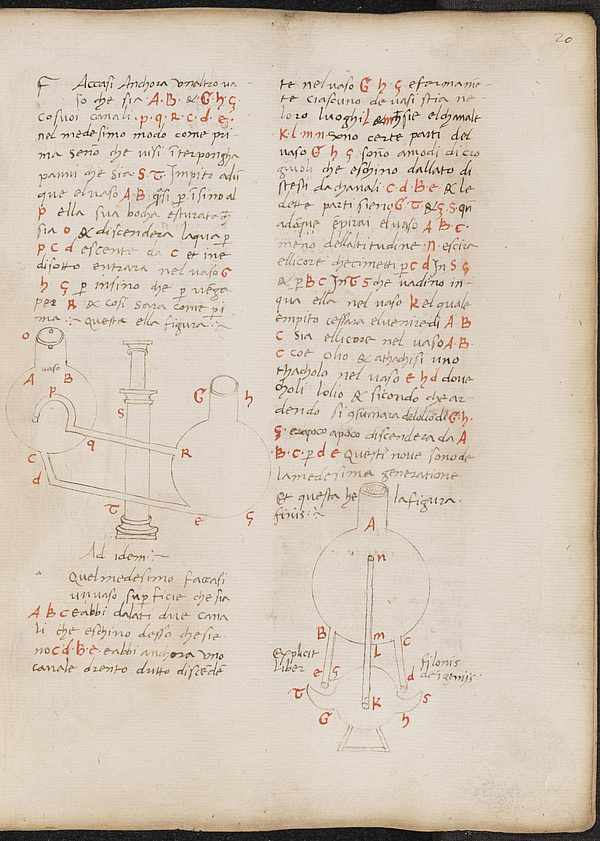 20
F Accasi Anchora unaltro va
so che sia A.B. & G.h.ç.
Co suoi canali .p.q.R.c.d.e.
nel medesimo modo come pri
ma seno che visi iterpongha
panni che sia .S.T. Impito adū
que el vaso A B q̄si p̄ isino al
p ella sua bocha esturata
sia o & discendera laqua p̄
p C d escente da C et ine
disotto entrara nel vaso G
h ç p̄ insino che p̄ vēga
per R & cosi sara come pi
ma :~ Questa ella figura :~
o
vaso
A B
p
S
G h
q
R
C
d
T
e ç
Ad idem :~
Quel medesimo faccasi
un vaso sup̄ficie che sia
A B C eabbi dalati due cana
li che eschino desso che sie
no C d.B.e. eabbi anchora uno
canale drento dutto discēdē
te nel vaso G h ç. e fermamē
te ciascuno de vasi stia ne
loro luoghi L sie el chanale
K.l.m.n. sono certe parti del
vaso G h ç sono amodi di cro
giuoli che eschino dallato di
stesti da chanali .C d.B e. & le
dette parti sieno G T & ç.S qn
adūque ēpirai el vaso A B C.
meno della titudine .n. escira
ellicore che inetti p̄ c d In S ç
& p̄ B C In T S che vadino in
qua ella nel vaso K el quale
empito cessara el venire di A B
C Sia ellicore nel vaso A.B.
C coe olio & athachisi uno
thacholo nel vaso e h d dove
choli lolio & sicondo che ar
dendo si cōsumara del olio di G.h.
ç. e apoco apoco discendera da A
.B.C. p̄ d e Questi nove sono de
la medesima generatione
et questa he la figura.
finis :~
A
n
B m C
L
e ç d
T S
K
G h
Explicit
liber
filonis
de īgeniis.